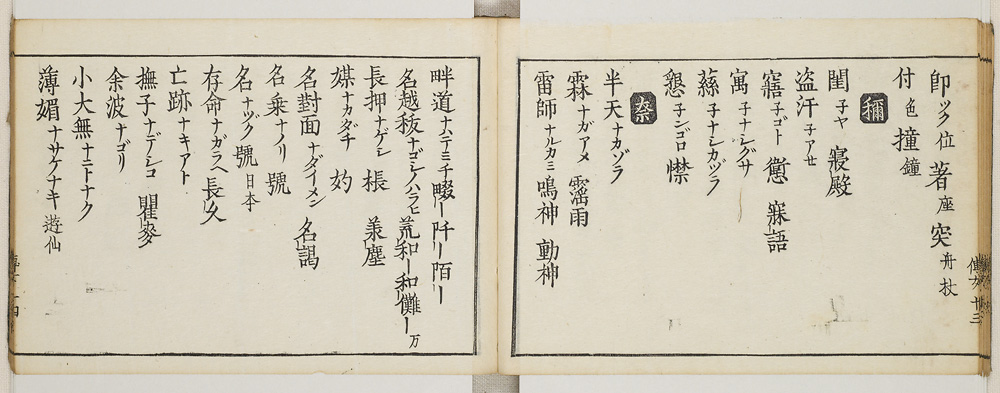 卽ツク位 著座 突舟杖
付色 撞鐘
禰
閨子ヤ 寢殿
盗汗子アせ
寤子ゴト 㦤 寐語
寓子ナシグサ
蕬子ナシカヅラ
懇子ンゴロ 㯲
奈
半天ナカゾラ
霖ナガアメ 霪雨
雷師ナルカミ 鳴神 動神
畔道ナハテミチ 畷ー 阡ー 陌ー
名越秡ナゴシノハラヒ 荒和ー 和儺ー万
長押ナゲシ 梹 羕塵
媒ナカダチ 妁
名對面ナダイメン 名謁
名乗ナノリ 號
名ナヅク 號日本
存命ナガラヘ 長久
亡跡ナキアト
撫子ナデシコ 瞿麥
余波ナゴリ
小大無ナニトナク
薄媚ナサケナキ 遊仙